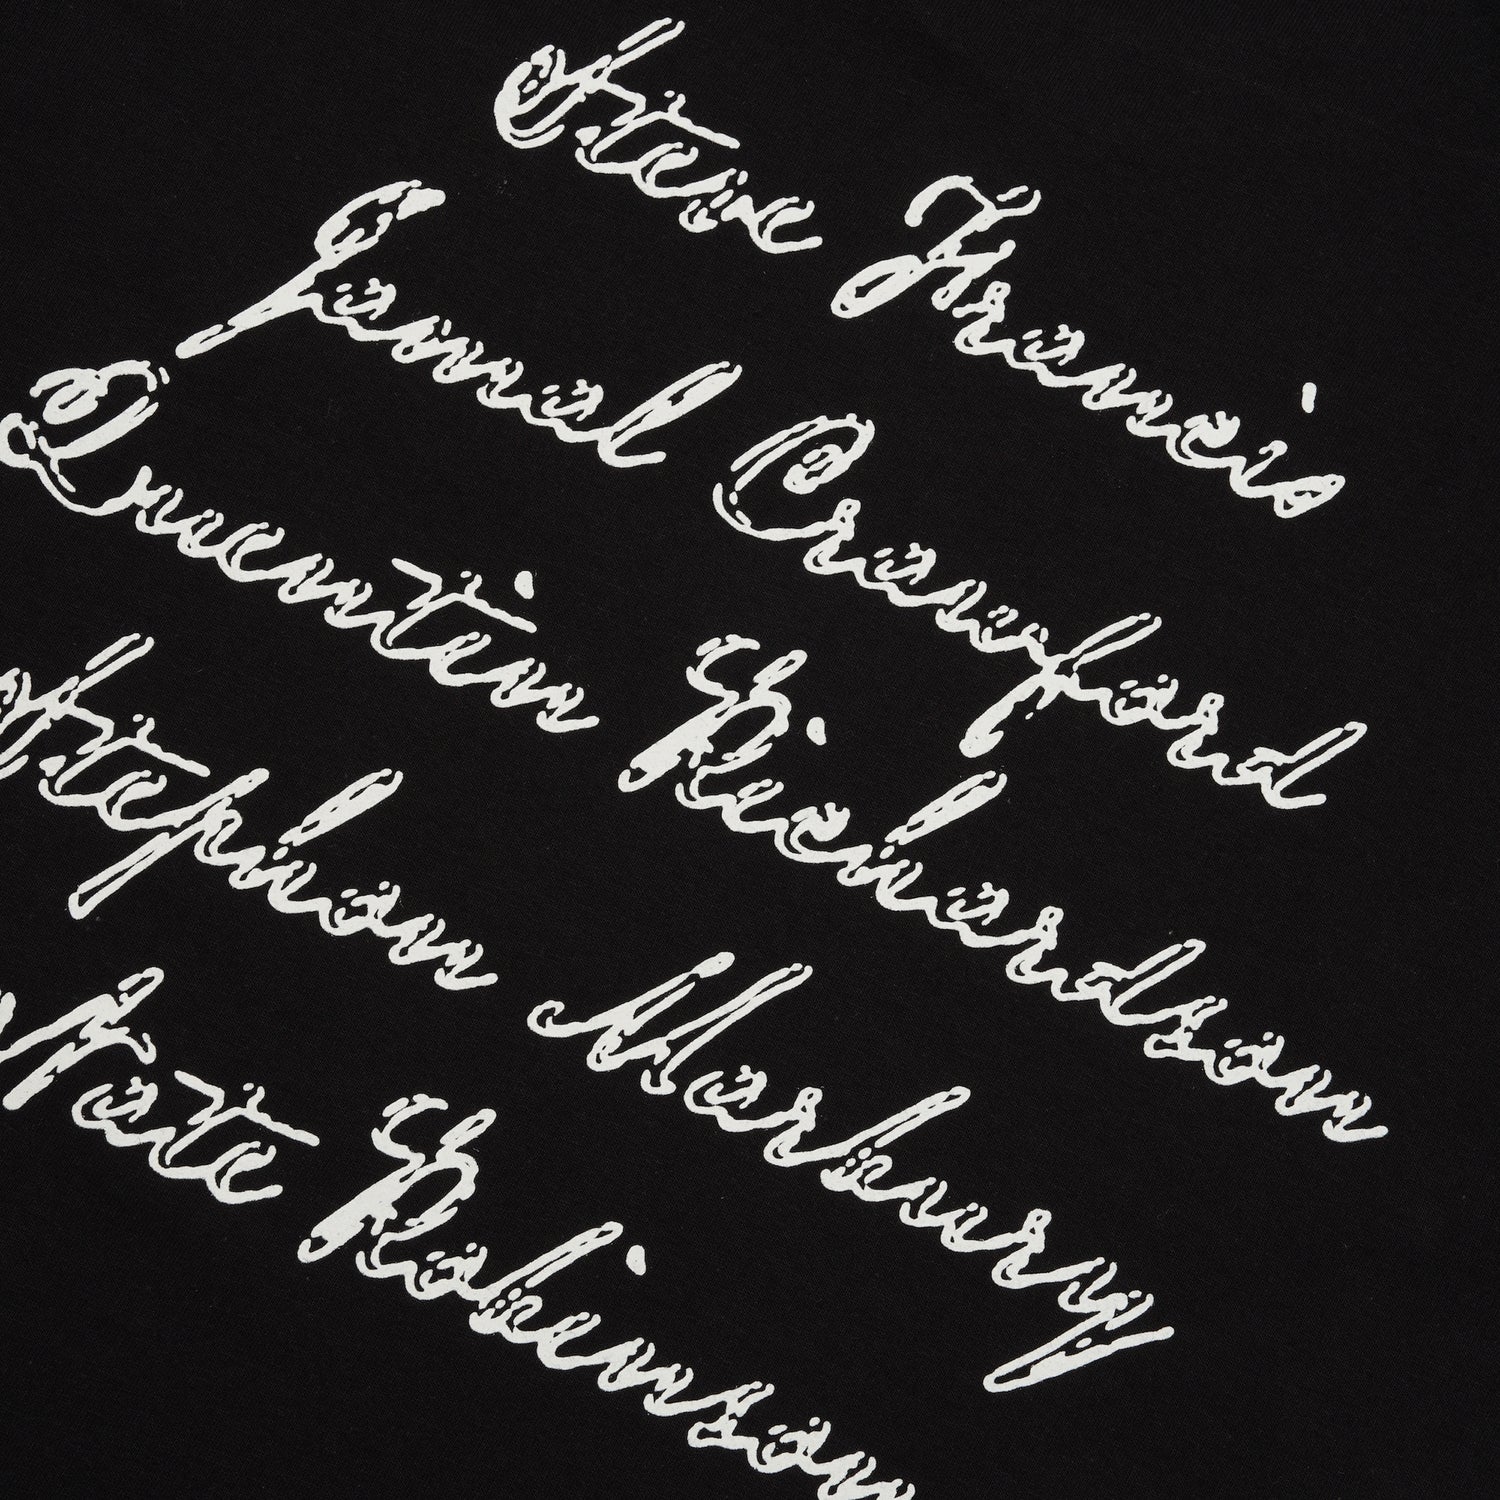 Steve Francis
Jamal Crawford
Quentin Richardson
Stephon Marbury
Nate Robinson